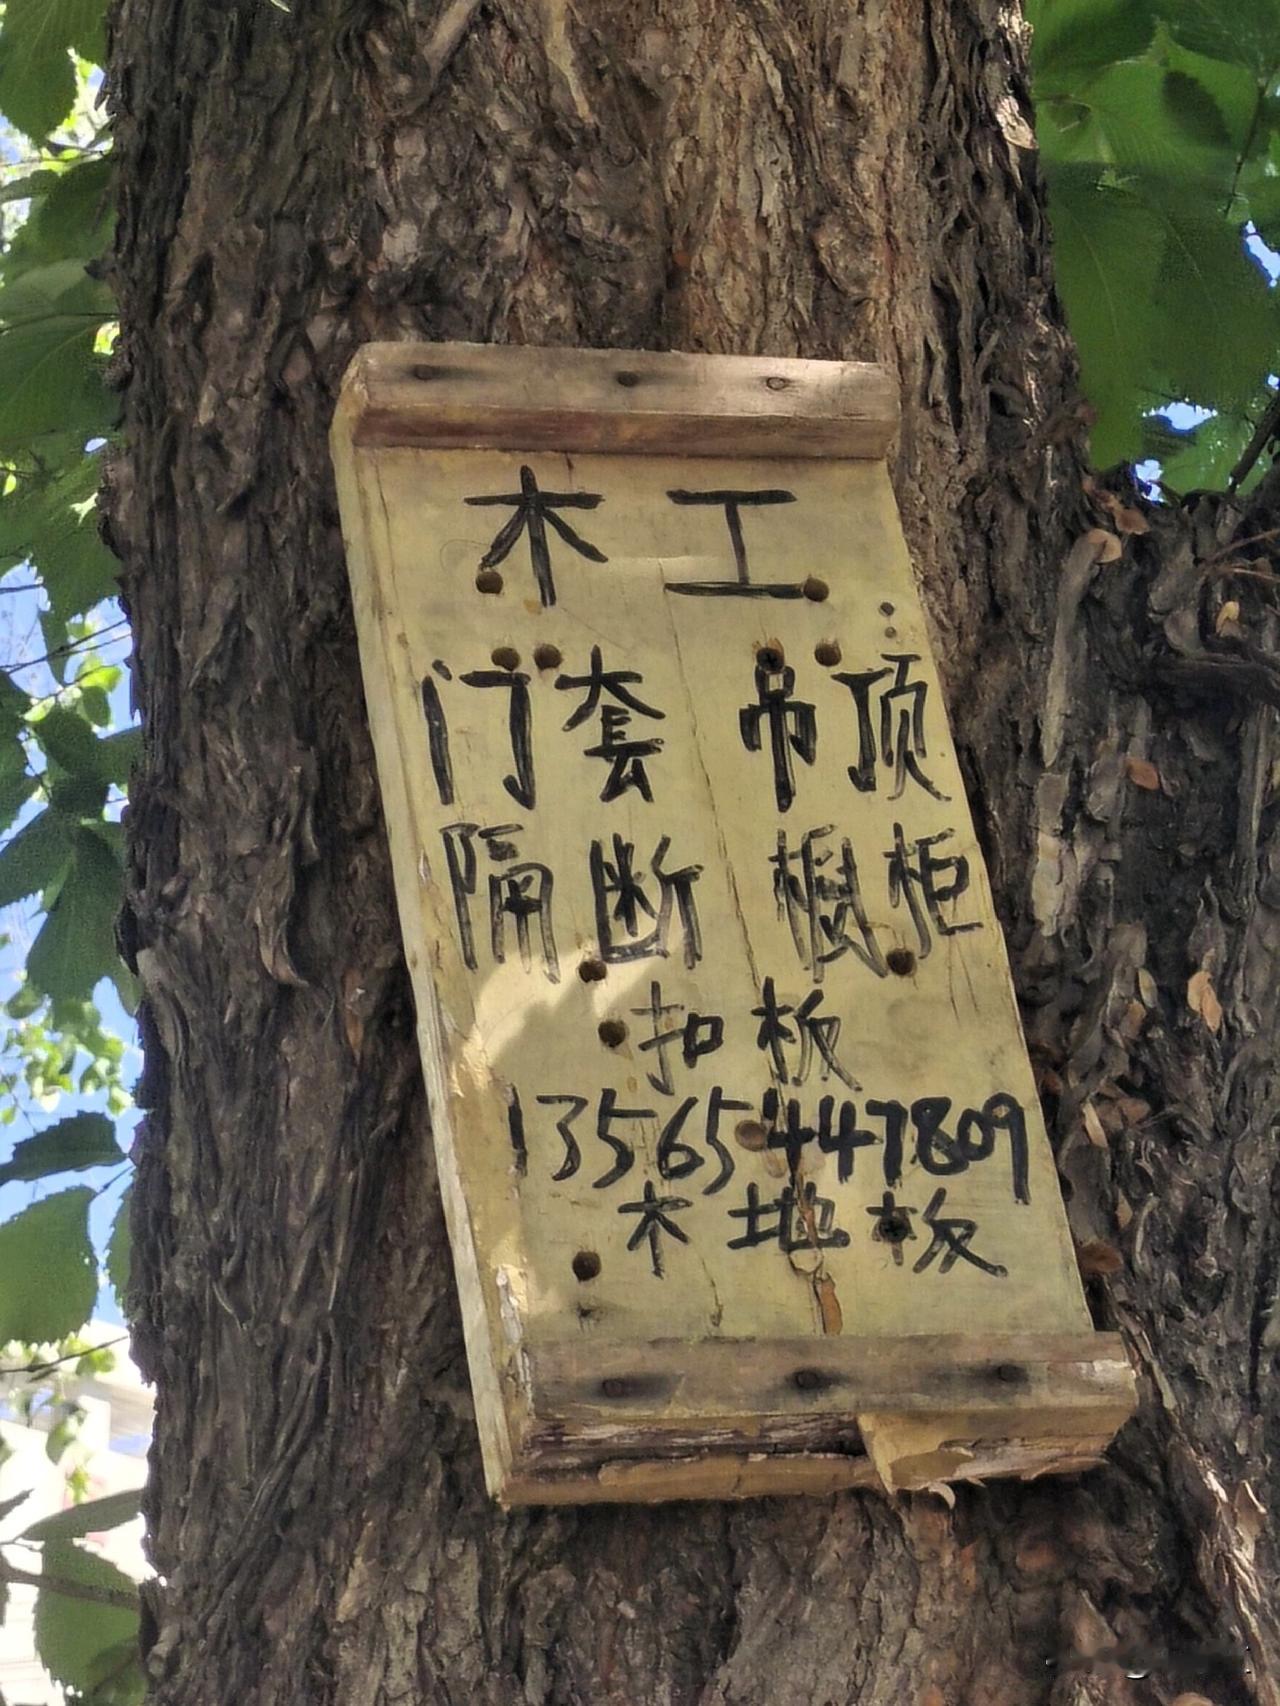 木工:
门套 吊顶
隔断 橱柜
扣板
13565447809
木地板